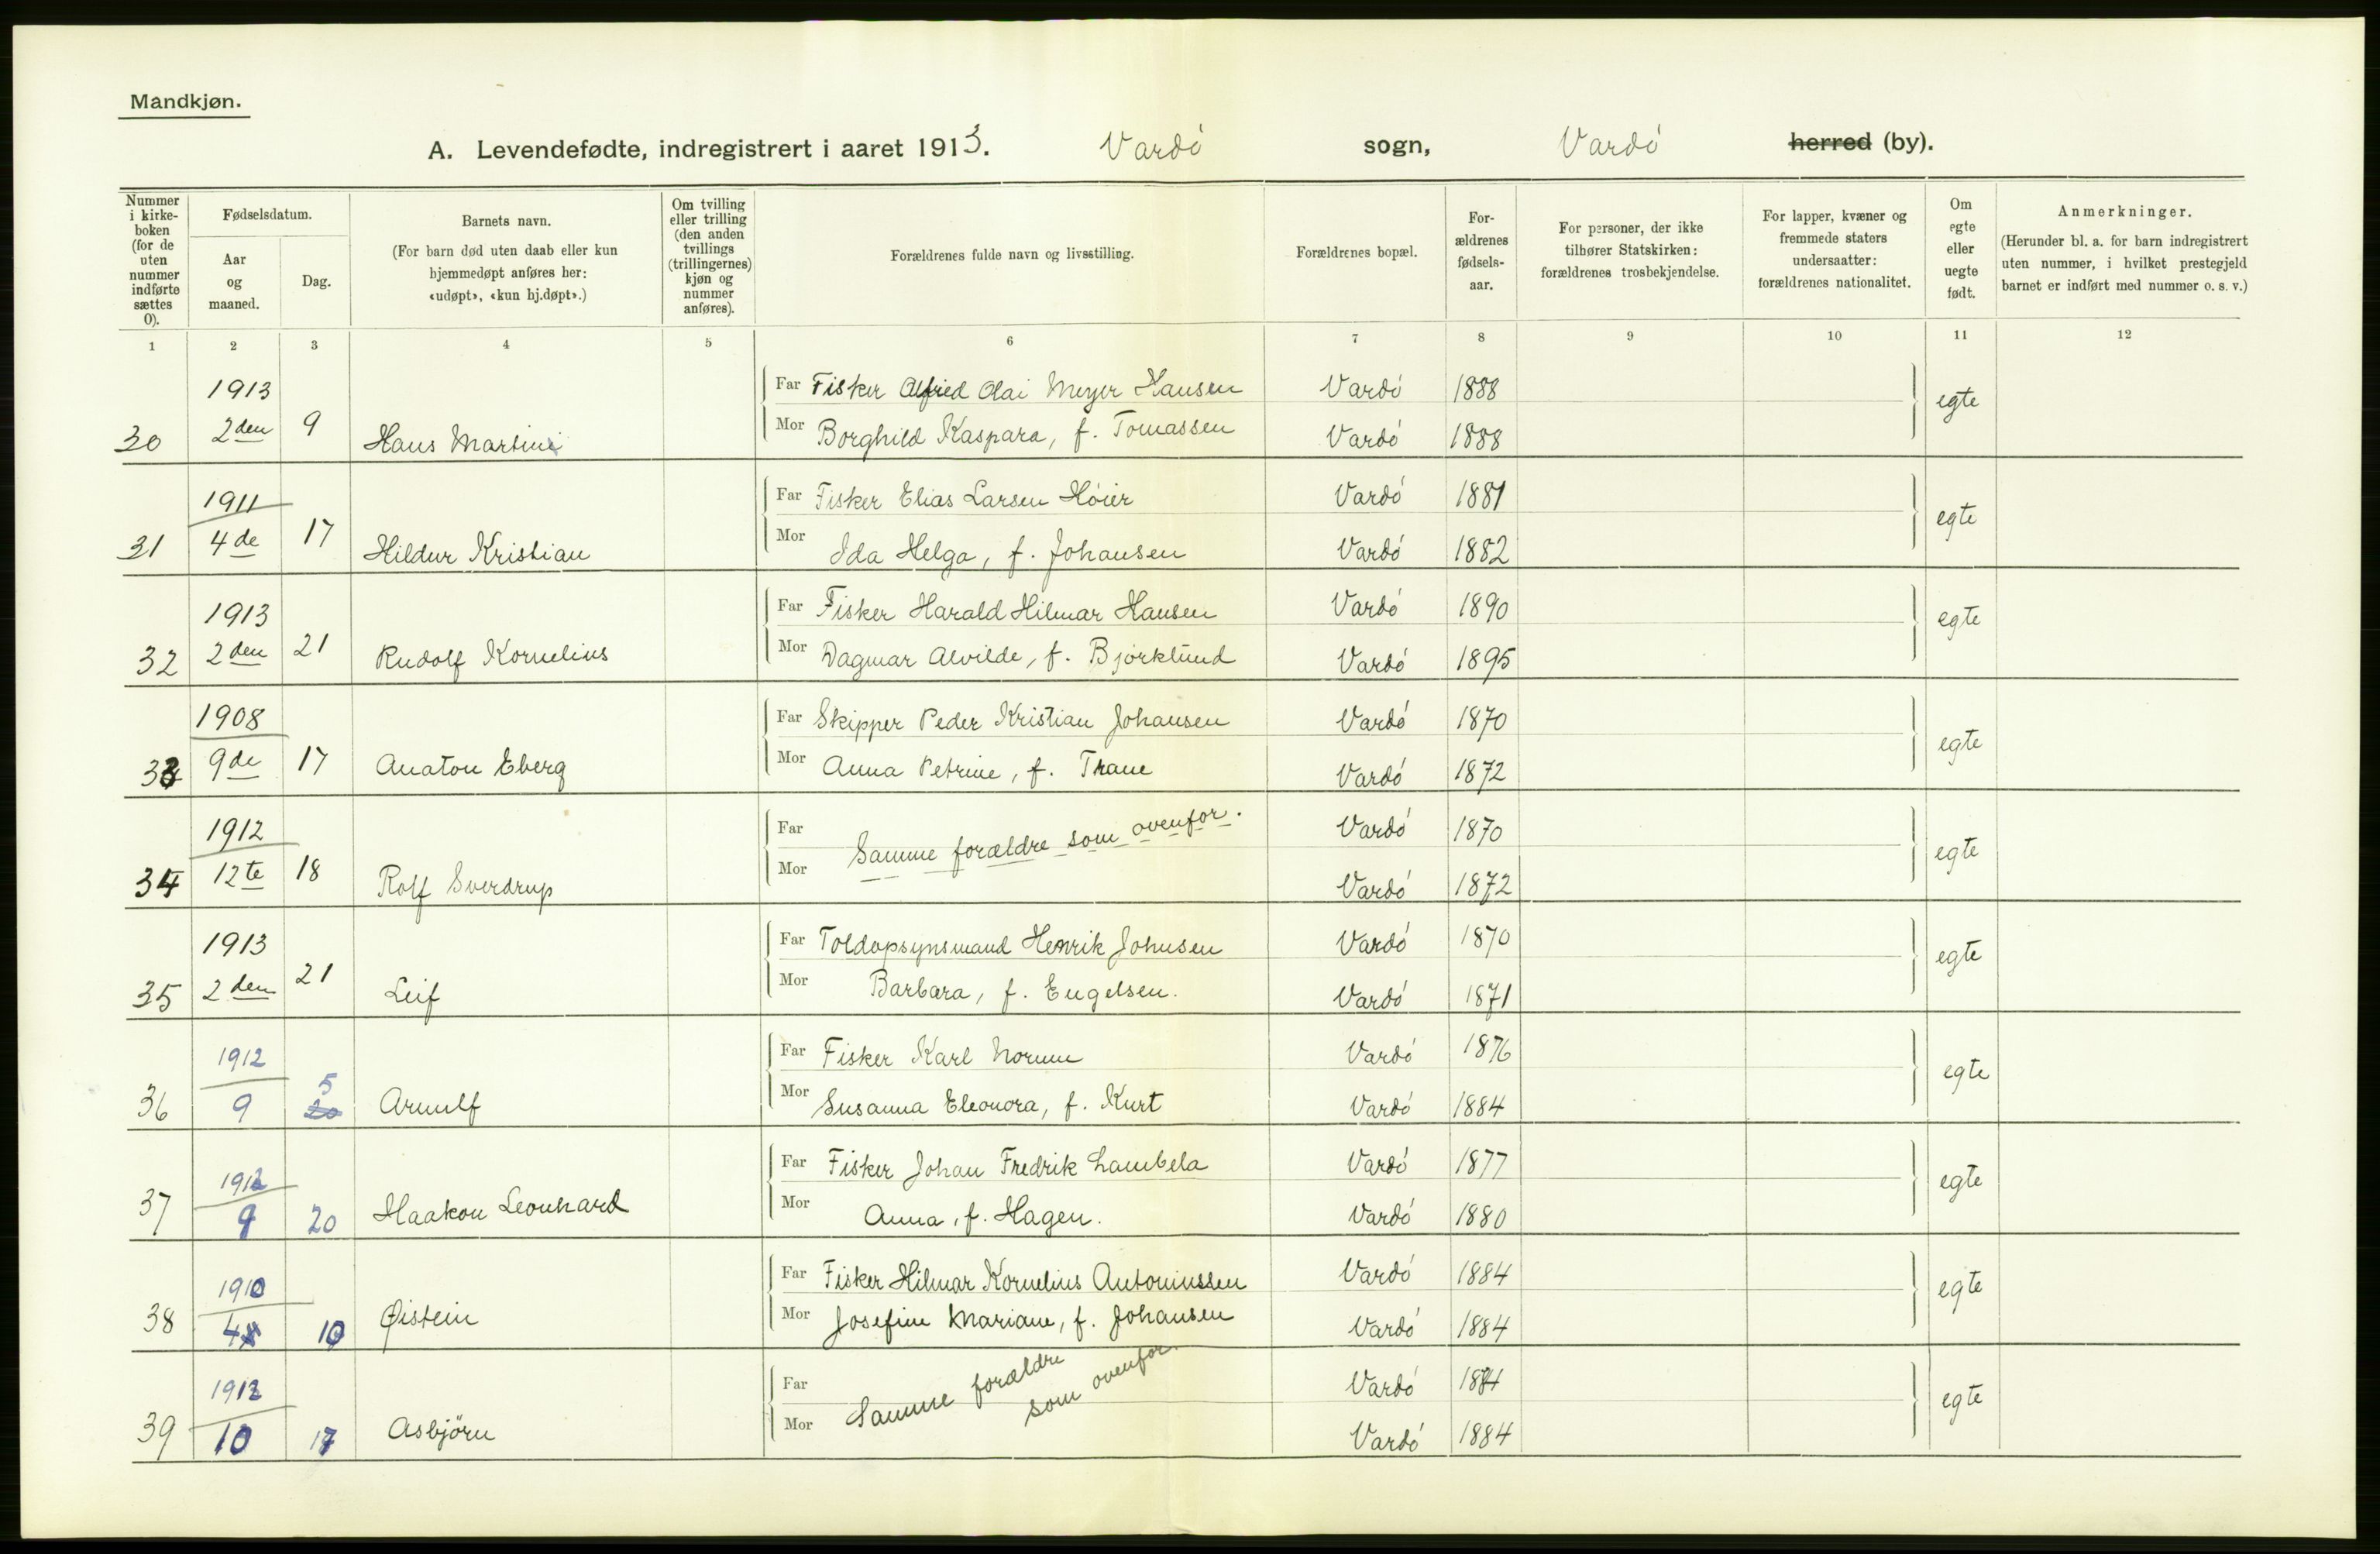 Mandkjøn.
A. Levendefødte, indregistrert i aaret 1913. Vardó sogn, Vardó herred (by).
Nummer i kirke- boken (for de uten nummer indførte sættes 0).
Fødselsdatum.
Aar og maaned.
Dag.
Barnets navn.
(For barn død uten daab eller kun hjemmedøpt anføres her: «udøpt», «kun hj.døpt».)
Om tvilling eller trilling (den anden tvillings (trillingernes) kjøn og nummer anføres).
Forældrenes fulde navn og livsstilling.
Forældrenes bopæl.
For- ældrenes fødsels- aar.
For personer, der ikke tilhører Statskirken: forældrenes trosbekjendelse.
For lapper, kvæner og fremmede staters undersaatter: forældrenes nationalitet.
Om egte eller uegte født.
Anmerkninger.
(Herunder bl. a. for barn indregistrert uten nummer, i hvilket prestegjeld barnet er indført med nummer o. s. v.)
1 2 3 4 5 6 7 8 9 10 11 12
1913 Far Fisker Alfred Olai Meyer Hansen Vardó 1888 egte
30 2den 9 Hans Martin Mor Borghild Kaspara, f. Tomassen Vardó 1888
1911 Far Fisker Elias Larsen Hóier Vardó 1881 egte
31 4de 17 Hildur Kristian Mor Ida Helga, f. Johansen Vardó 1882
1913 Far Fisker Harald Hilmar Hansen Vardó 1890 egte
32 2den 21 Rudolf Kornelius Mor Dagmar Alvilde, f. Bjórklund Vardó 1895
1908 Far Skipper Peder Kristian Johansen Vardó 1870 egte
33 9de 17 Anaton Eberg Mor Anna Petrine, f. Thane Vardó 1872
1912 Far Samme forældre som ovenfor. Vardó 1870 egte
34 12te 18 Rolf Sverdrup Mor Vardó 1872
1913 Far Toldopsynsmand Henrik Johnsen Vardó 1870 egte
35 2den 21 Leif Mor Barbara, f. Engelsen. Vardó 1871
1912 Far Fisker Karl Normu Vardó 1876 egte
36 9 5 20 Arnulf Mor Susanna Eleonora, f. Kurt Vardó 1884
1912 Far Fisker Johan Fredrik Lambela Vardó 1877 egte
37 9 20 Haakon Leonhard Mor Anna, f. Hagen. Vardó 1880
1910 Far Fisker Hilmar Kornelius Antoniussen Vardó 1884 egte
38 4 10 Øistein Mor Josefine Mariane, f. Johansen Vardó 1884
1912 Far Samme forældre som ovenfor. Vardó 1884 egte
39 10 17 Asbjörn Mor Vardó 1884